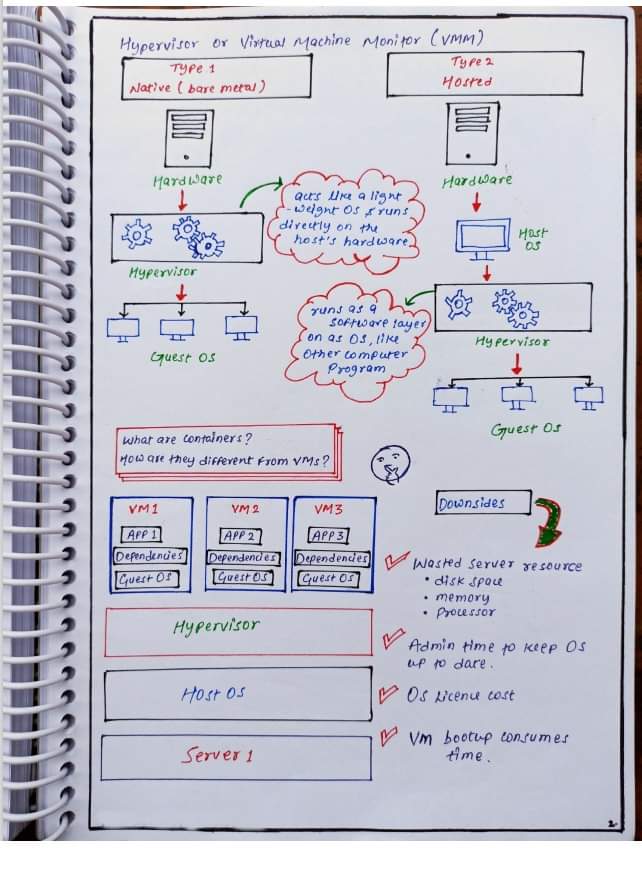 Hypervisor or Virtual Machine Monitor (VMM)
Type 1
Native (bare metal)
Type 2
Hosted
Hardware
Hardware
acts like a light
-weight OS & runs
directly on the
host's hardware
Host
OS
Hypervisor
runs as a
software layer
on as OS, like
other computer
Program
Hypervisor
Guest OS
Guest OS
What are containers?
How are they different from VMs?
VM1
APP 1
Dependencies
Guest OS
VM2
APP 2
Dependencies
Guest OS
VM3
APP 3
Dependencies
Guest OS
Hypervisor
Host OS
Server 1
Downsides
Wasted server resource
• disk space
• memory
• processor
Admin time to keep OS
up to date.
OS licence cost
VM bootup consumes
time.
2